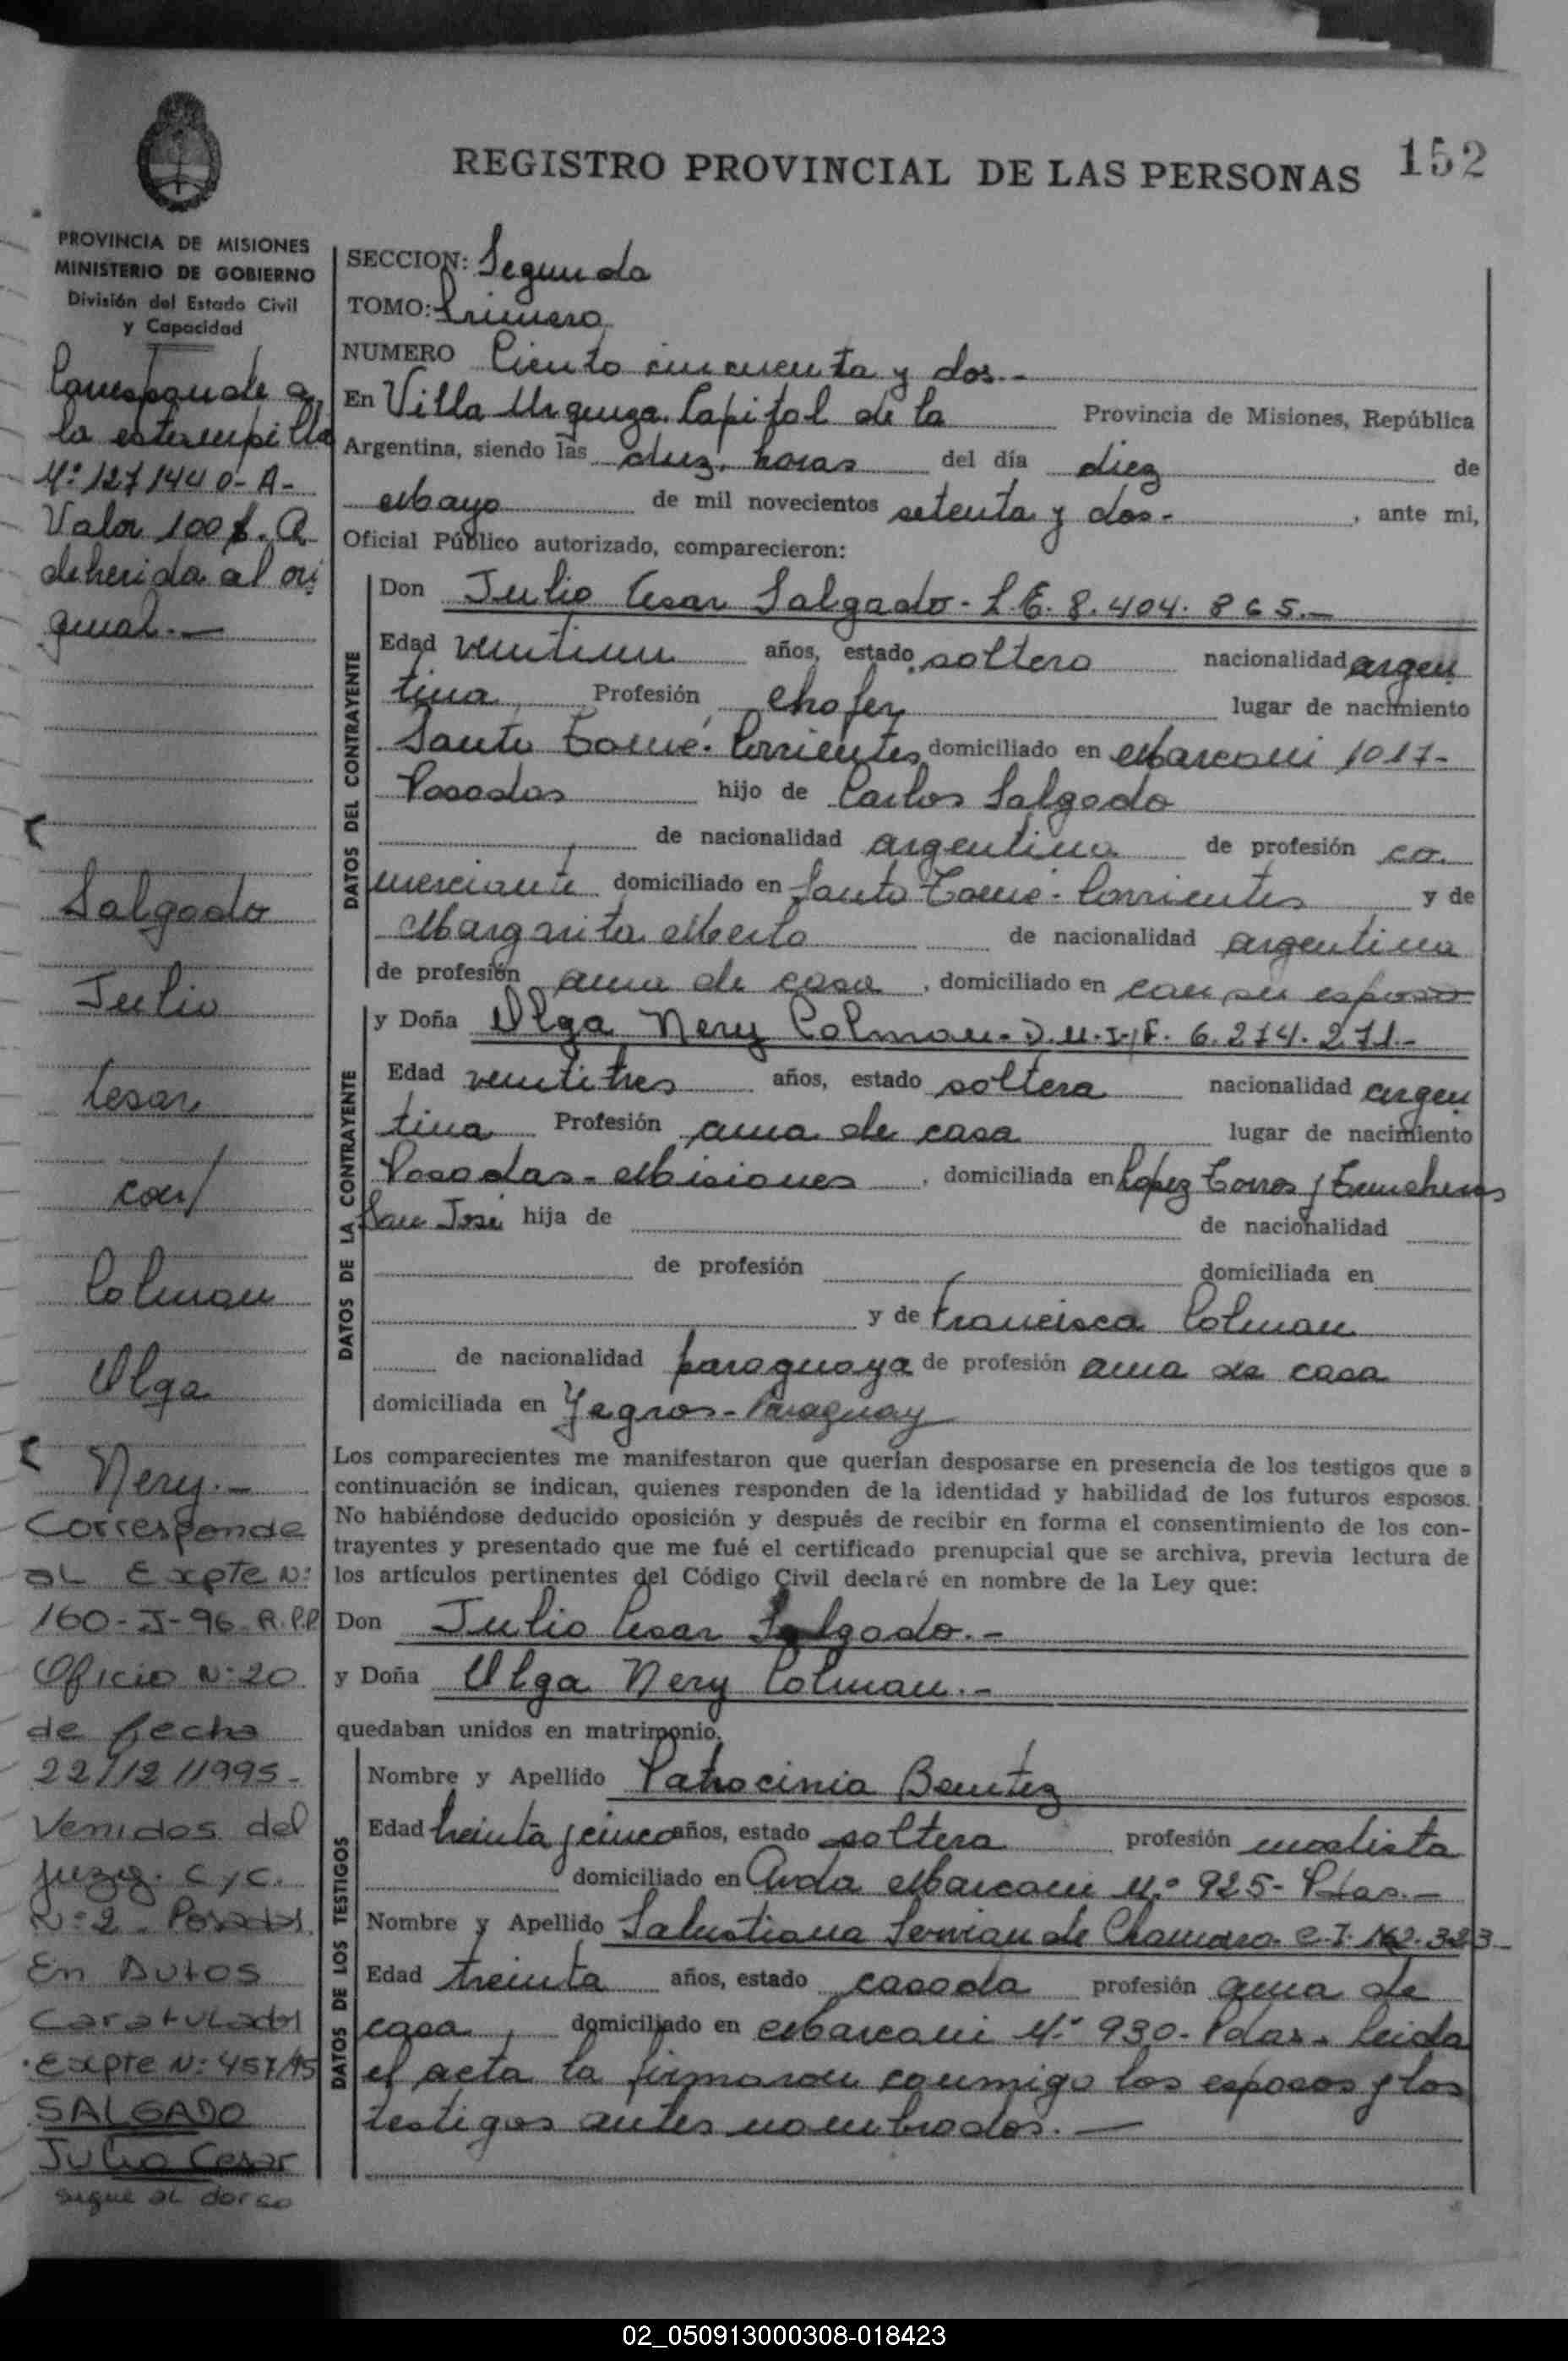 REGISTRO PROVINCIAL DE LAS PERSONAS 152
PROVINCIA DE MISIONES
MINISTERIO DE GOBIERNO
División del Estado Civil
y Capacidad
Corresponde a
la estampilla
Nº 1271440-A-
Valor 100 $. A
deherida al ori
ginal.-
Salgado
Julio
Cesar
con/
Colman
Olga
Nery.-
Corresponde
al Expte Nº:
160-J-96 R.P.P
Oficio Nº: 20
de fecha
22/12/1995-
Venidos del
Juzg. C y C.
Nº: 2 - Posadas
En Autos
Caratulados
Expte Nº: 457/95
SALGADO
Julio Cesar
sigue al dorso
SECCION: Segunda
TOMO: Primero
NUMERO Ciento cincuenta y dos.-
En Villa Urquiza. Capital de la Provincia de Misiones, República
Argentina, siendo las diez, horas del día diez de
Mayo de mil novecientos setenta y dos- , ante mi,
Oficial Público autorizado, comparecieron:
DATOS DEL CONTRAYENTE
Don Julio Cesar Salgado- L.E. 8.404.865.-
Edad veintiun años, estado soltero nacionalidad argen
tina, Profesión chofer lugar de nacimiento
Santo Tomé. Corrientes domiciliado en Marconi 1017-
Posadas hijo de Carlos Salgado
de nacionalidad argentina de profesión co
merciante domiciliado en Santo Tomé- Corrientes y de
Margarita Merlo de nacionalidad argentina
de profesión ama de casa , domiciliado en con su esposo
DATOS DE LA CONTRAYENTE
y Doña Olga Nery Colman- D.N.I.F. 6.274.271.-
Edad veintitres años, estado soltera nacionalidad argen
tina Profesión ama de casa lugar de nacimiento
Posadas- Misiones , domiciliada en Lopez Torres y Trincheras
San José hija de de nacionalidad
de profesión domiciliada en
y de Francisca Colman
de nacionalidad paraguaya de profesión ama de casa
domiciliada en Yegros- Paraguay
Los comparecientes me manifestaron que querían desposarse en presencia de los testigos que a
continuación se indican, quienes responden de la identidad y habilidad de los futuros esposos.
No habiéndose deducido oposición y después de recibir en forma el consentimiento de los con-
trayentes y presentado que me fué el certificado prenupcial que se archiva, previa lectura de
los artículos pertinentes del Código Civil declaré en nombre de la Ley que:
Don Julio Cesar Salgado.-
y Doña Olga Nery Colman.-
quedaban unidos en matrimonio.
DATOS DE LOS TESTIGOS
Nombre y Apellido Patrocinia Benitez
Edad treinta y cinco años, estado soltera profesión modista
domiciliado en Avda Marconi Nº 925- Pdas.-
Nombre y Apellido Salustiana Servian de Chamorro C.I. 162.323-
Edad treinta años, estado casada profesión ama de
casa, domiciliado en Marconi Nº 930- Pdas. Leida
el acta la firmaron conmigo los esposos y los
testigos antes nombrados.-
02_050913000308-018423